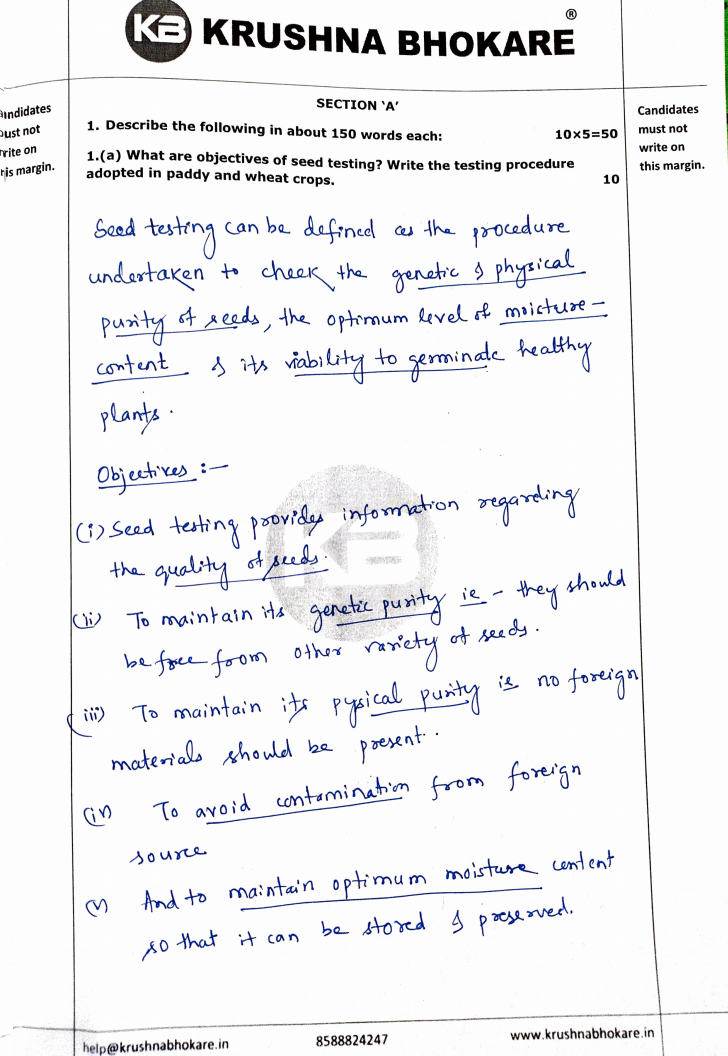 KB KRUSHNA BHOKARE ®
andidates
ust not
rite on
is margin.
SECTION 'A'
1. Describe the following in about 150 words each: 10×5=50
1.(a) What are objectives of seed testing? Write the testing procedure
adopted in paddy and wheat crops. 10
Candidates
must not
write on
this margin.
Seed testing can be defined as the procedure
undertaken to check the genetic & physical
purity of seeds, the optimum level of moisture-
content & its viability to germinate healthy
plants.
Objectives :-
(i) Seed testing provides information regarding
the quality of seeds.
(ii) To maintain its genetic purity ie - they should
be free from other variety of seeds.
(iii) To maintain its pysical purity ie no foreign
materials should be present.
(iv) To avoid contamination from foreign
source
(v) And to maintain optimum moisture content
so that it can be stored & preserved.
KB
help@krushnabhokare.in 8588824247 www.krushnabhokare.in